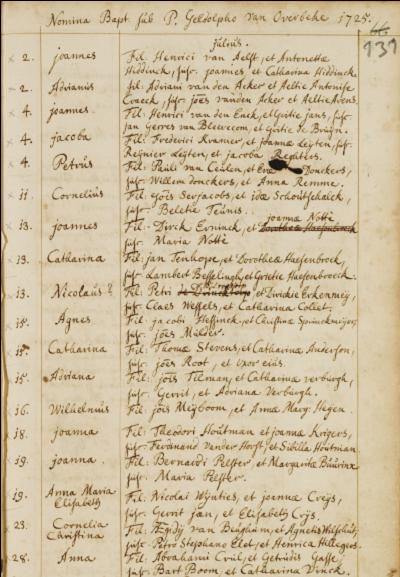 Nomina Bapt. sub P. Geldolpho van Overbeke 1725.
131
Julius.
2. Joannes Fil: Henrici van Aelst, et Antonettæ
Hiddinck, susc. Joannes, et Catharina Hiddinck.
2. Adrianus fil: Adriani van den Acker et Aeltie Antonisse
susc. Joës vanden Acker et Aeltie
4. Joannes. Fil: Henrici van den Enck, et Girtie Jans, susc.
Jan Gerres van et Girtie de Bruijn.
4. Jacoba Fil: Frederici Kramer, et Joannæ Leijten, susc.
Reijnier Leijten, et Jacoba
4. Petrus Fil: Pauli van Ceulen, et Evæ Donckers,
susc. Willem donckers, et Anna Remme.
11. Cornelius Fil: Joïs Serjacobs, et Idæ Schoutschalck,
susc. Beletie Teunis.
Joannæ Nottè
13. Joannes Fil: Dirck Erninck, et
susc. Maria Nottè
13. Catharina Fil: Jan Tenhope, et Dorotheæ Haefenbroeck,
susc. Lambert Besselingh, et Grietie Haefenbroeck.
13. Nicolaus Fil: Petri et Dirckie
susc. Claes Wessels, et Catharina
15. Agnes Fil: Jacobi Hessinck, et
susc. Joës Mulder.
15. Catharina Fil: Thomæ Stevens, et Catharinæ Anderson,
susc. Joës Root, et uxor eius.
15. Adriana Fil: Joïs Tilman, et Catharinæ Verburgh,
susc. Gerrit, et Adriana Verburgh.
16. Wilhelmus Fil: Joïs Meijboom, et Anna Marg. Hagen.
18. Joanna Fil: Theodori Houtman et Joannæ Krigers,
susc. Ferdinand vander Horst, et Sibilla Houtman
19. Joanna. Fil: Bernardi Pelster, et Margaritæ
susc. Maria Pelster.
19. Anna Maria Fil: Nicolai Wijnties, et Joannæ Creijs,
Elisabeth susc. Gerrit Jan, et Elisabeth Crijs.
23. Cornelia Fil: Ægidij van Beughem, et Agnetis
Christina susc. Petro Stephano et Henrica Hillegers.
28. Anna Fil: Abrahami Crul, et Getrudis Gasse,
susc. Bart Boom, et Catharina Vinck.